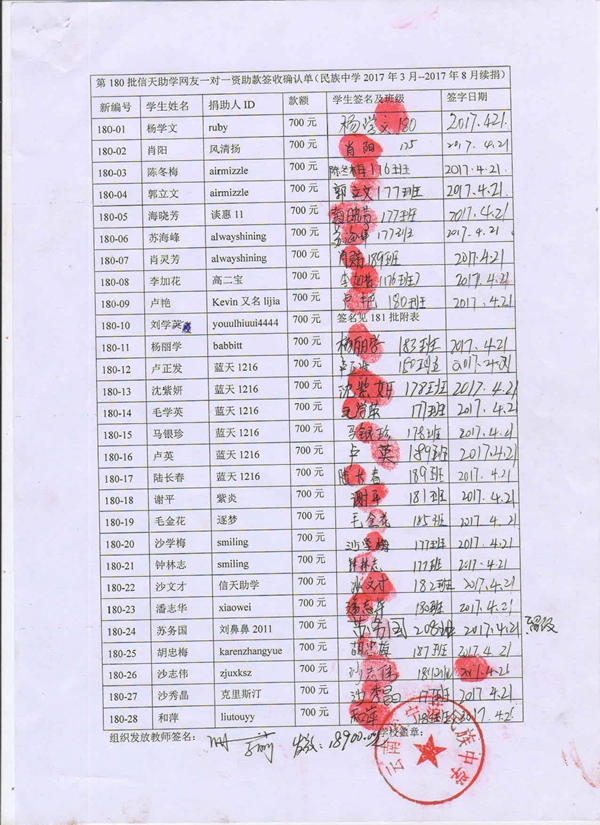 第 180 批信天助学网友一对一资助款签收确认单（民族中学 2017 年 3 月--2017 年 8 月续捐）
新编号 学生姓名 捐助人 ID 款额 学生签名及班级 签字日期
180-01 杨学文 ruby 700 元 杨学文 180 2017.4.21
180-02 肖阳 风清扬 700 元 肖阳 2017.4.21
180-03 陈冬梅 airmizzle 700 元 陈冬梅 176班 2017.4.21
180-04 郭立文 airmizzle 700 元 郭立文 177班 2017.4.21
180-05 海晓芳 谈惠 11 700 元 177班 2017.4.21
180-06 苏海峰 alwayshining 700 元 177班 2017.4.21
180-07 肖灵芳 alwayshining 700 元 189班 2017.4.21
180-08 李加花 高二宝 700 元 176班 2017.4.21
180-09 卢艳 Kevin 又名 lijia 700 元 卢艳 180班 2017.4.21
180-10 刘学 youulhiuui4444 700 元 签名见 181 批附表
180-11 杨丽学 babbitt 700 元 杨丽学 183班 2017.4.21
180-12 卢正发 蓝天 1216 700 元 180班
180-13 沈紫妍 蓝天 1216 700 元 沈紫妍 178班 2017.4.21
180-14 毛学英 蓝天 1216 700 元 177班 2017.4.21
180-15 马银珍 蓝天 1216 700 元 马银珍 178班 2017.4.21
180-16 卢英 蓝天 1216 700 元 卢英 189班 2017.4.21
180-17 陆长春 蓝天 1216 700 元 陆长春 189班 2017.4.21
180-18 谢平 紫炎 700 元 谢平 181班 2017.4.21
180-19 毛金花 逐梦 700 元 毛金花 185班 2017.4.21
180-20 沙学梅 smiling 700 元 沙学梅 177班 2017.4.21
180-21 钟林志 smiling 700 元 钟林志 177班 2017.4.21
180-22 沙文才 信天助学 700 元 沙文才 182班 2017.4.21
180-23 潘志华 xiaowei 700 元 180班 2017.4.21
180-24 苏务国 刘鼻鼻 2011 700 元 苏务国 208班 2017.4.21
180-25 胡忠梅 karenzhangyue 700 元 胡忠梅 187班 2017.4.21
180-26 沙志伟 zjuxksz 700 元 沙志伟 2017.4.21
180-27 沙秀晶 克里斯汀 700 元 沙秀晶 2017.4.21
180-28 和萍 liutouyy 700 元 和萍 2017.4.21
组织发放教师签名： 发放：18900.00元 学校盖章：
民族中学